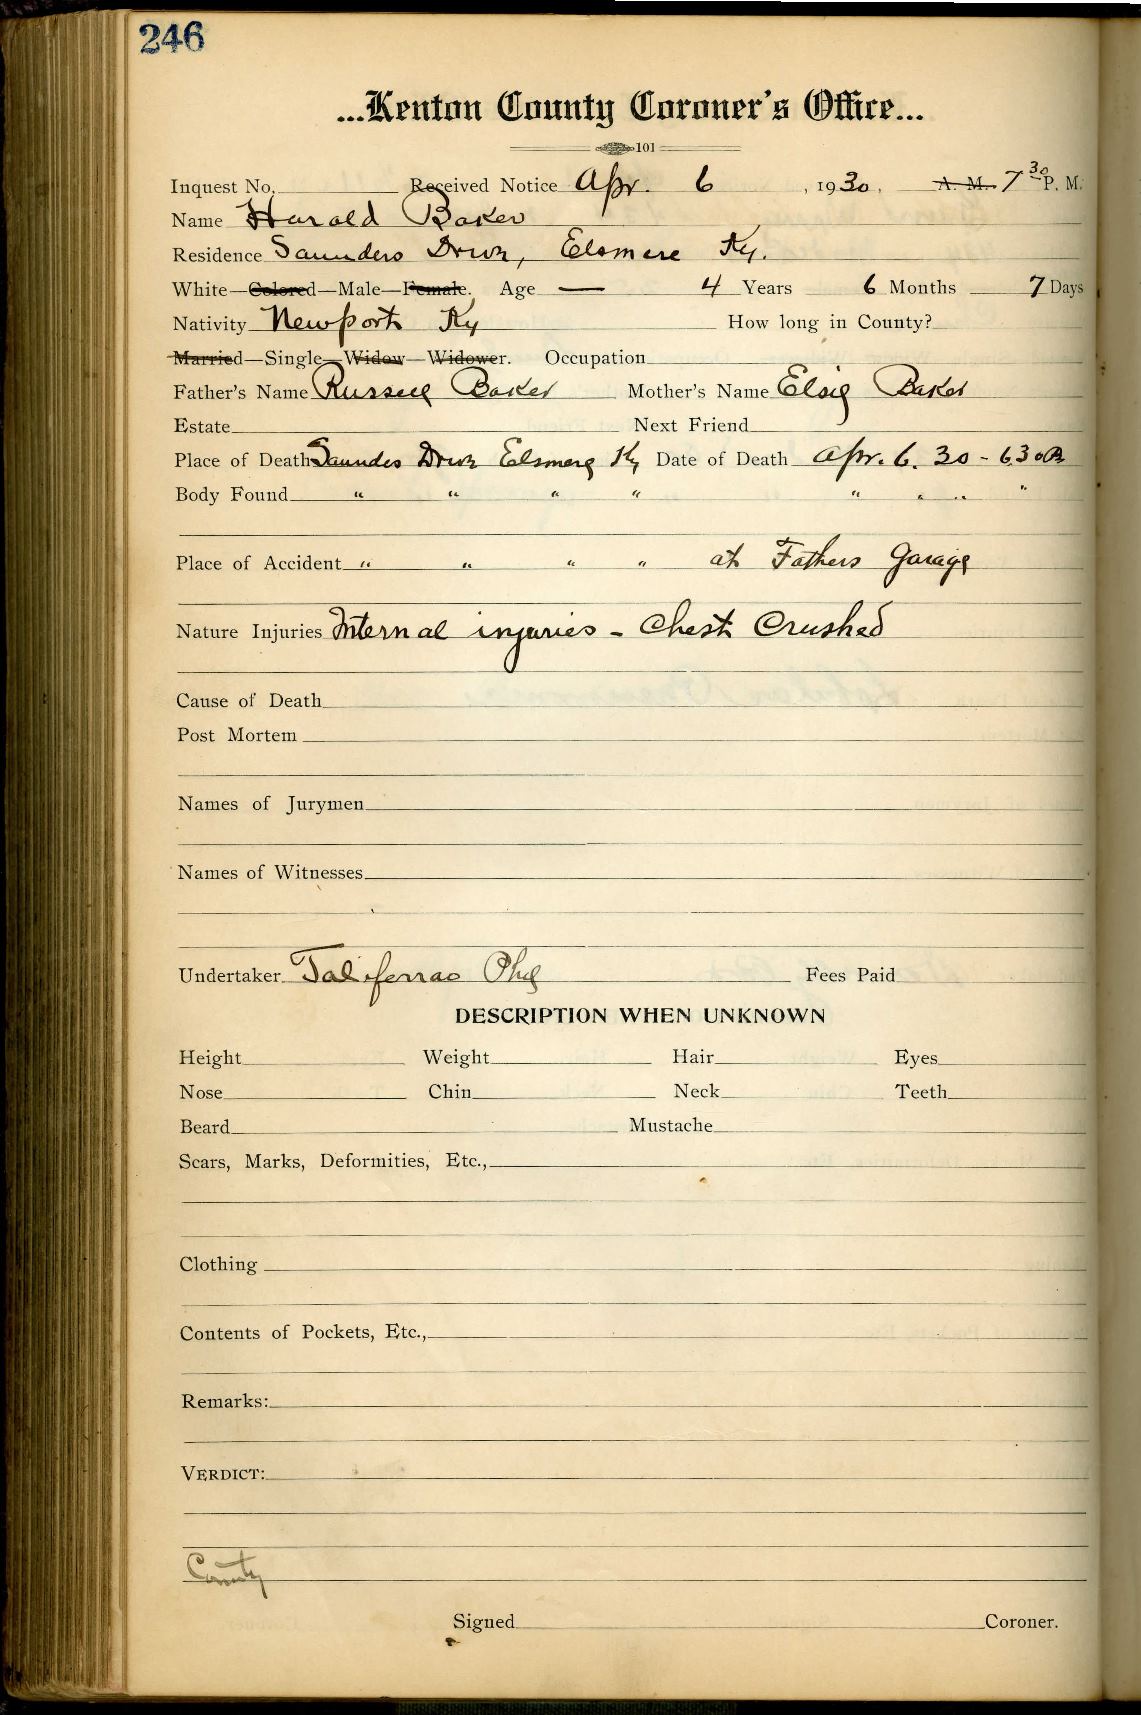 246
...Kenton County Coroner's Office...
101
Inquest No. Received Notice Apr. 6, 1930, A. M. 7 30 P. M.
Name Harold Baker
Residence Saunders Drive, Elsmere Ky.
White—Colored—Male—Female. Age — 4 Years 6 Months 7 Days
Nativity Newport Ky How long in County?
Married—Single—Widow—Widower. Occupation
Father's Name Russell Baker Mother's Name Elsie Baker
Estate Next Friend
Place of Death Saunders Drive Elsmere Ky Date of Death Apr. 6. 30 - 630 P
Body Found " " " " " " " "
Place of Accident " " " " at Fathers Garage
Nature Injuries Internal injuries - Chest Crushed
Cause of Death
Post Mortem
Names of Jurymen
Names of Witnesses
Undertaker Taliferrao Fees Paid
DESCRIPTION WHEN UNKNOWN
Height Weight Hair Eyes
Nose Chin Neck Teeth
Beard Mustache
Scars, Marks, Deformities, Etc.,
Clothing
Contents of Pockets, Etc.,
Remarks:
VERDICT:
County
Signed Coroner.